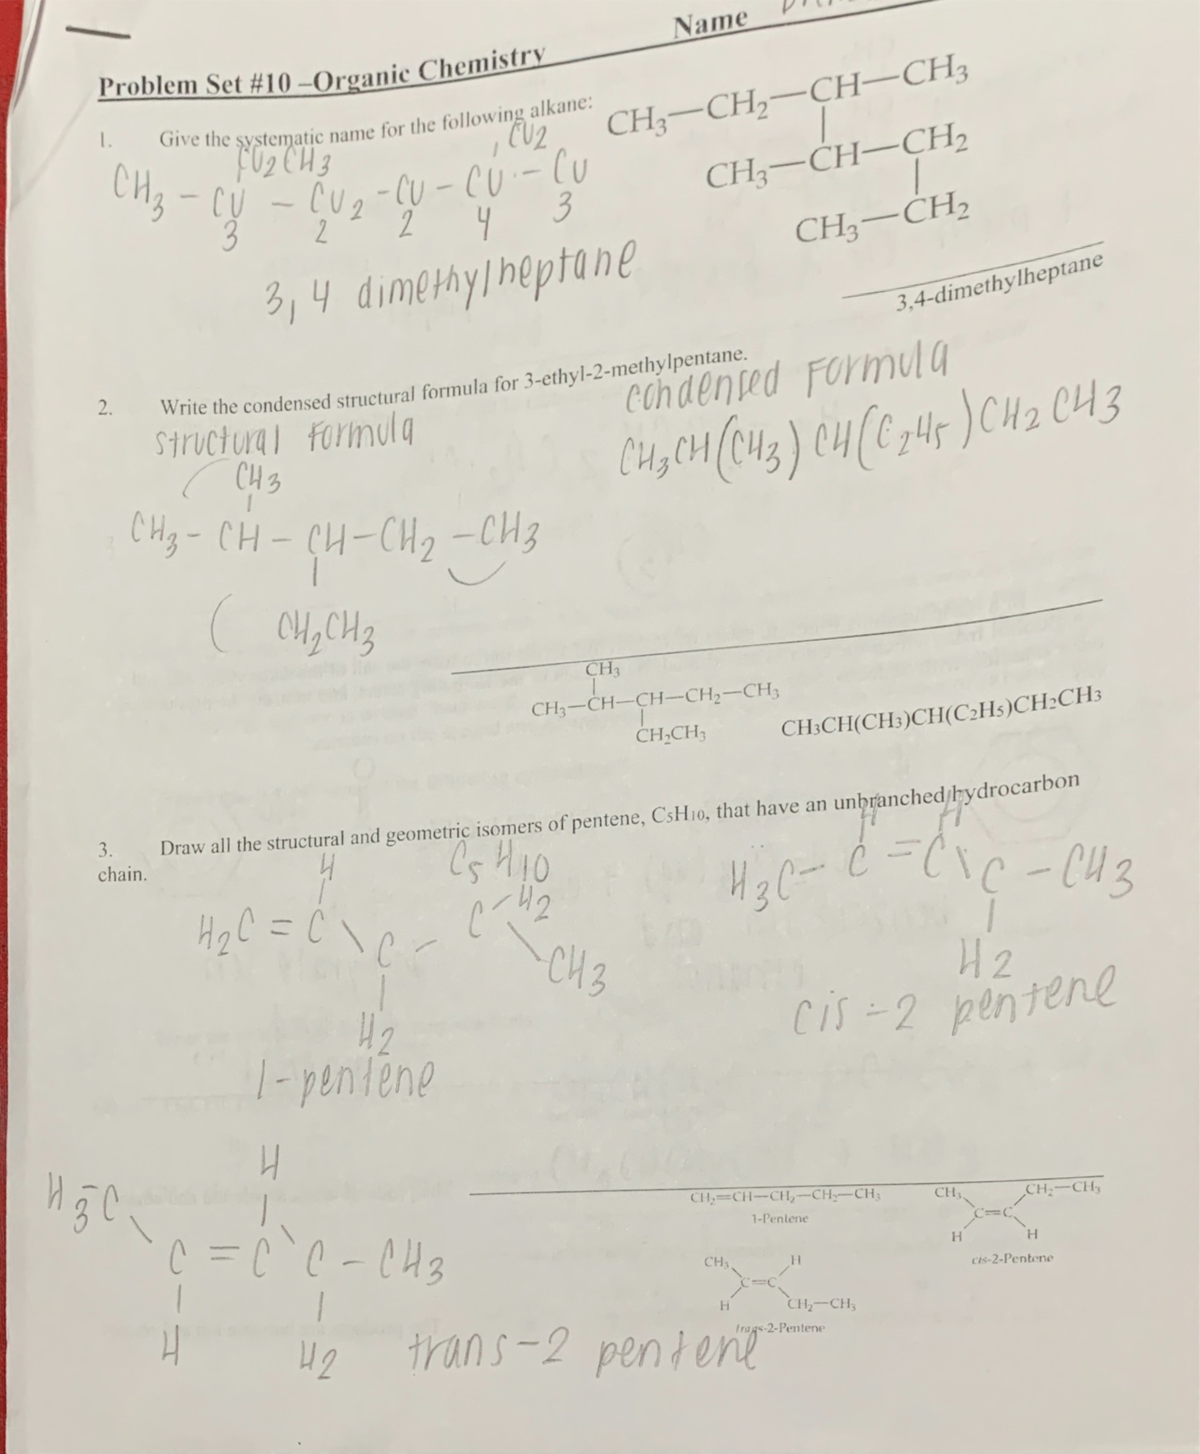 Name
Problem Set #10 –Organic Chemistry
1. Give the systematic name for the following alkane:
CH3—CH2—CH—CH3
CH3—CH—CH2
CH3—CH2
CU2CH3 , CU2
CH3 - CU - CU2 - CU - CU - CU
3 2 2 4 3
3,4 dimethylheptane
3,4-dimethylheptane
2. Write the condensed structural formula for 3-ethyl-2-methylpentane.
structural Formula
condensed Formula
CH3CH(CH3)CH(C2H5)CH2CH3
CH3
CH3 - CH - CH - CH2 - CH3
CH2CH3
CH3
CH3—CH—CH—CH2—CH3
CH2CH3
CH3CH(CH3)CH(C2H5)CH2CH3
3. Draw all the structural and geometric isomers of pentene, C5H10, that have an unbranched hydrocarbon
chain.
C5H10
H
H2C = C \ C - C - H2 \ CH3
H2
1-pentene
H H
H3C - C = C \ C - CH3
H2
cis-2 pentene
H
H3C \ C = C \ C - CH3
H H2
trans-2 pentene
CH2=CH—CH2—CH2—CH3
1-Pentene
CH3 CH2—CH3
C=C
H H
cis-2-Pentene
CH3 H
C=C
H CH2—CH3
trans-2-Pentene